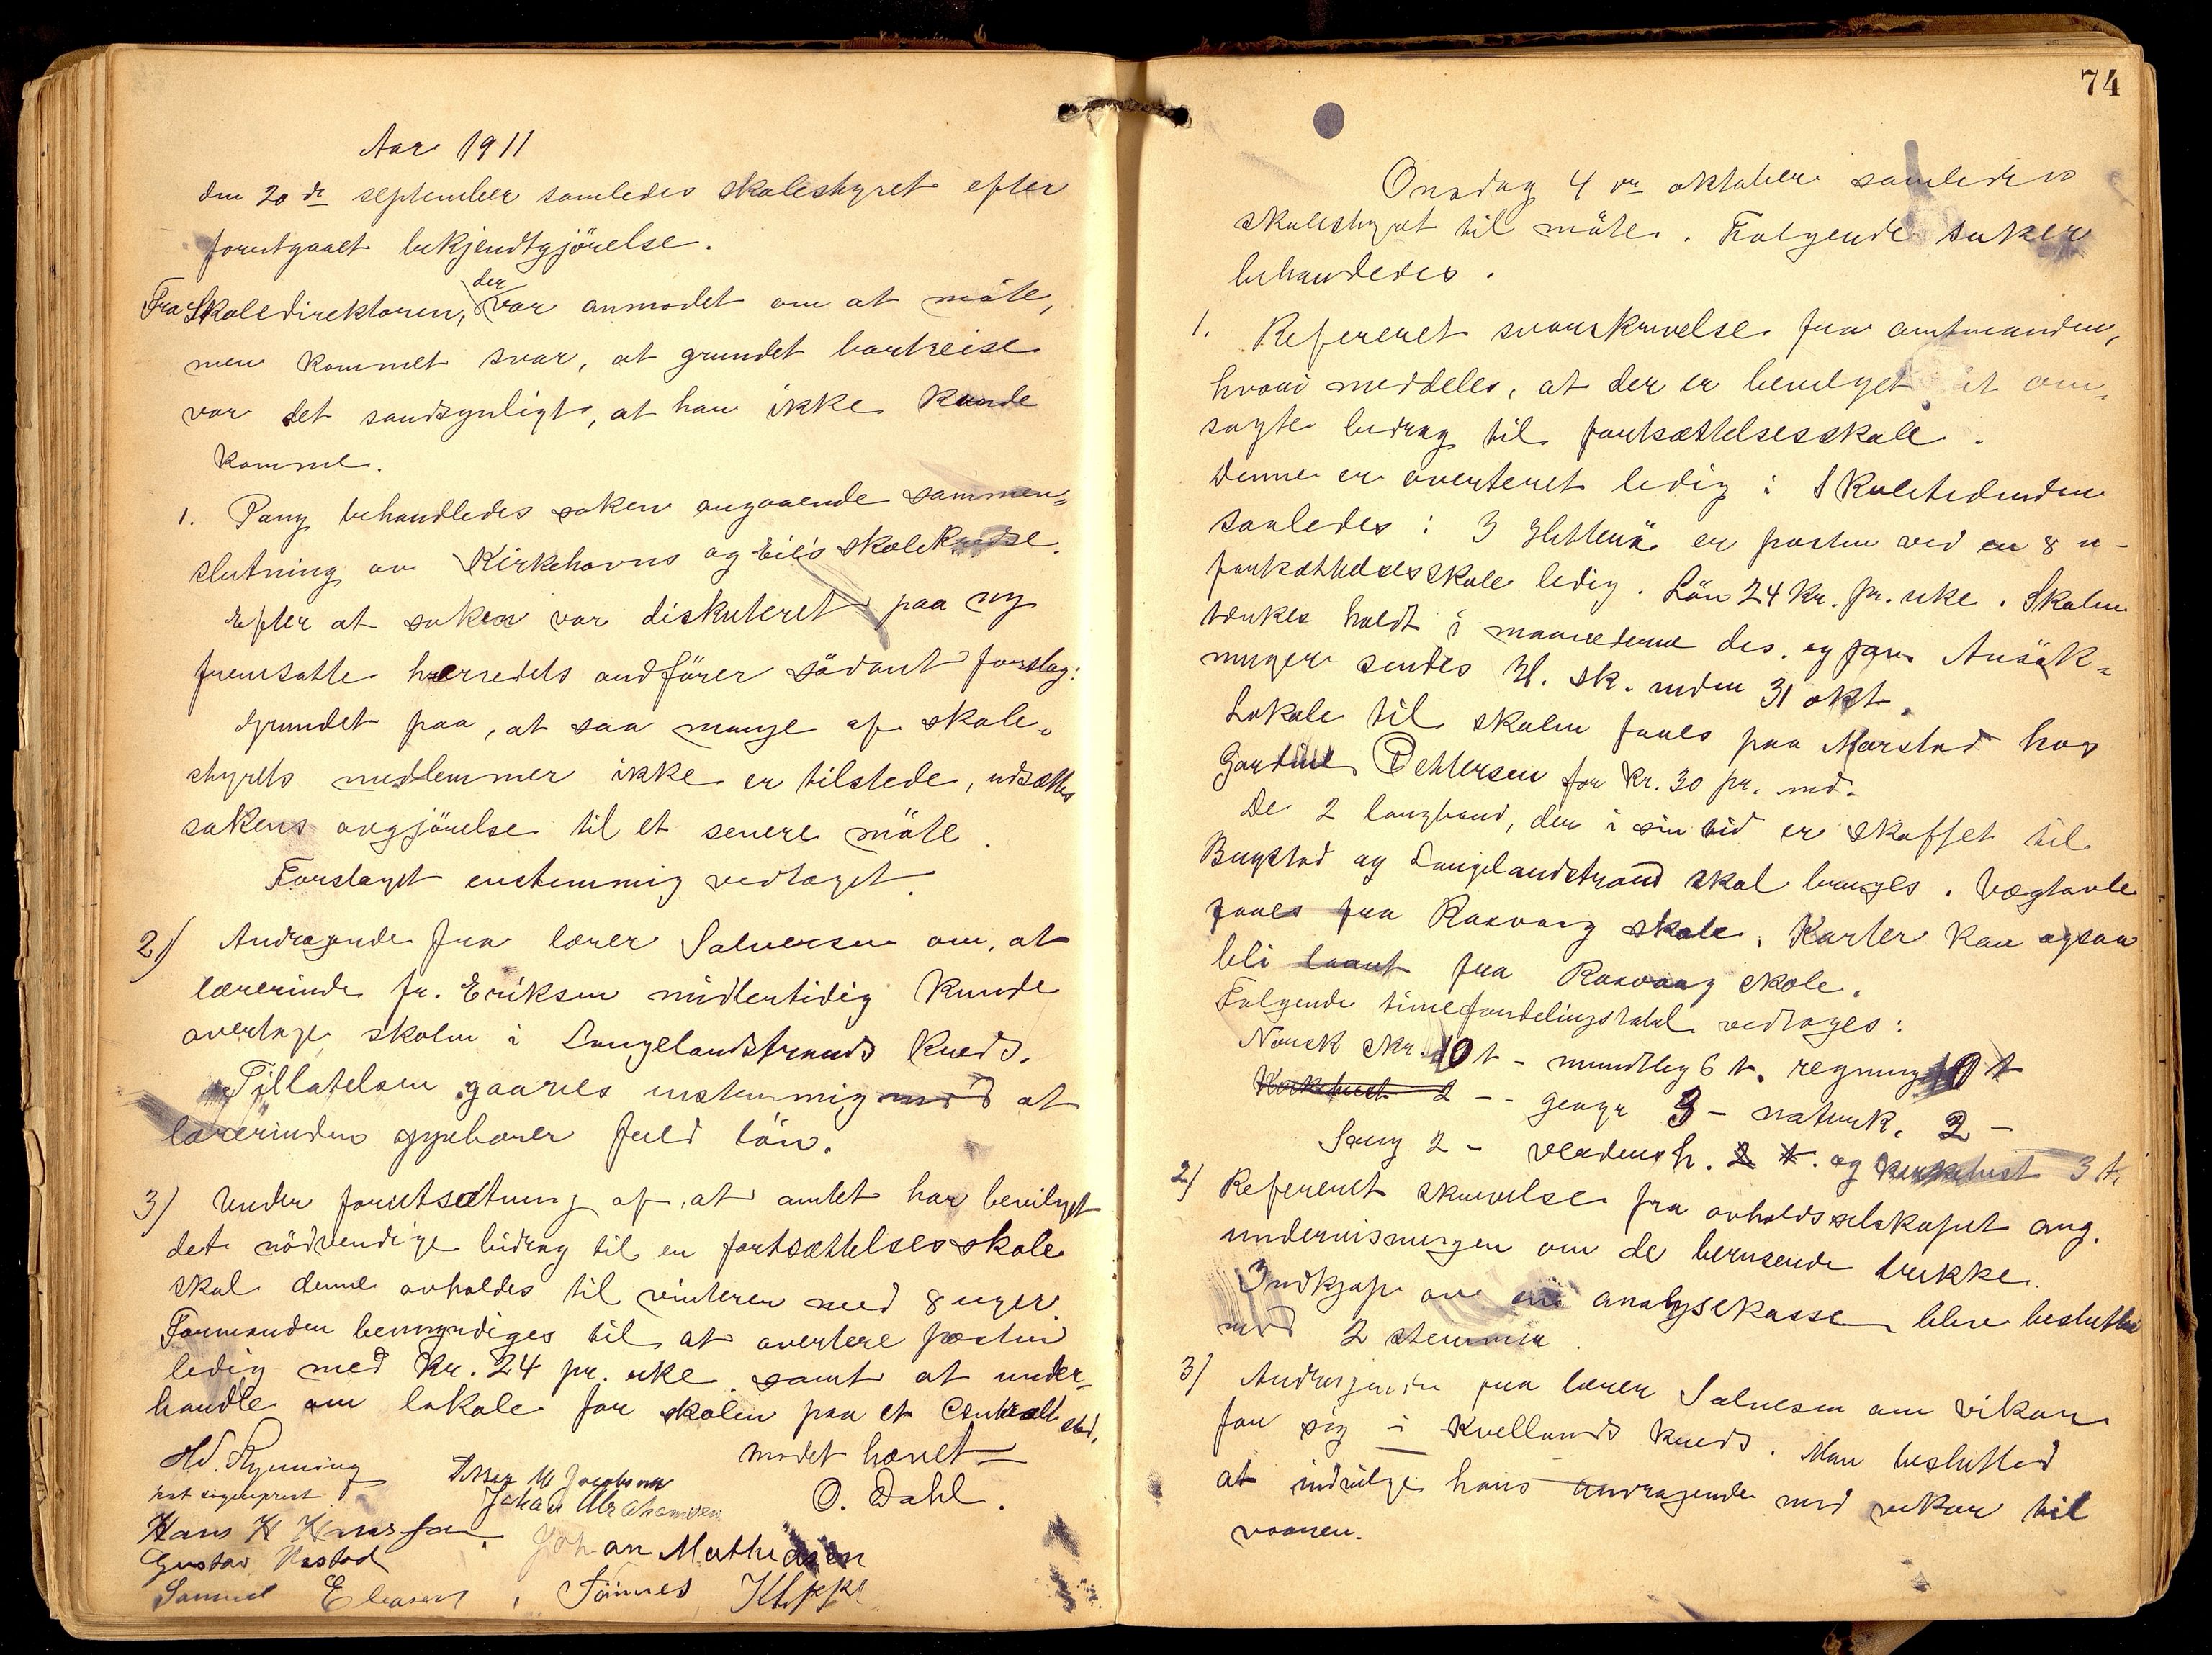 Aar 1911
den 20de september samledes skolestyret efter
forutgaaet bekjendtgjörelse.
Fra Skoledirektören, der var anmodet om at möte,
men kommet svar, at grundet bortreise
var det sandsynligt, at han ikke kunde
komme.
1. Paany behandledes saken angaaende sammen-
slutning av Kirkehavns og Eie's skolekredse.
Efter at saken var diskuteret paa ny
fremsatte herredets ordförer sådant forslag:
Grundet paa, at saa mange af skole-
styrets medlemmer ikke er tilstede, udsættes
sakens avgjörelse til et senere möte.
Forslaget enstemmig vedtaget.
2) Andragende fra lærer Salvesen om, at
lærerinde fr. Eriksen midlertidig kunde
overtage skolen i Langelandstrands kreds.
Tillatelsen gaaves enstemmig med at
lærerinden oppebærer fuld lön.
3) Under forutsætning af, at amtet har bevilget
det nödvendige bidrag til en fortsættelsesskole
skal denne avholdes til vinteren med 8 uger.
Formanden bemyndiges til at avertere posten
ledig med kr. 24 pr. uke samt at under-
handle om lokale for skolen paa et centralt sted.
Mødet hævet
O. Dahl.
Johan Abrahamsen
Hans H Hansson
Johan Mathiassen
Gustav
Samuel Eliasen, Tönnes Klippe
74
Onsdag 4de oktober samledes
skolestyret til möte. Følgende saker
behandledes.
1. Refereret svarskrivelse fra amtmanden,
hvori meddeles, at der er bevilget et om-
søgte bidrag til fortsættelsesskole.
Denne er averteret ledig i Skoletidenden
saaledes: I Hitterö er posten ved en 8 u-
fortsættelsesskole ledig. Lön 24 kr. pr. uke. Skolen
tænkes holdt i maanederne des. og jan. Ansök-
ninger sendes H. sk. inden 31 okt.
Lokale til skolen faaes paa Marstad hos
Gardine Pettersen for kr. 30 pr. md.
De 2 langbord, der i sin tid er skaffet til
Bugstad og Langelandstrand skal bruges. Vægtavle
faaes fra Rasvaag skole. Karter kan ogsaa
bli laant fra Rasvaag skole.
Følgende timefordelingstabel vedtages:
Norsk skr. 10 t - mundtlig 6 t. regning 10 t
Kirkehist 2 - - geogr 3 - naturk. 2 -
Sang 2 - verdensh. 2 t. og kirkehist 3 t.
2) Refereret skrivelse fra avholdsselskapet ang.
undervisningen om de berusende drikke.
Indkjøp av en analysekasse blev besluttet
mod 2 stemmer.
3) Andragende fra lærer Salvesen om vikar
for sig i Kvellands kreds. Man beslutted
at indvilge hans andragende med vikar til
vaaren.